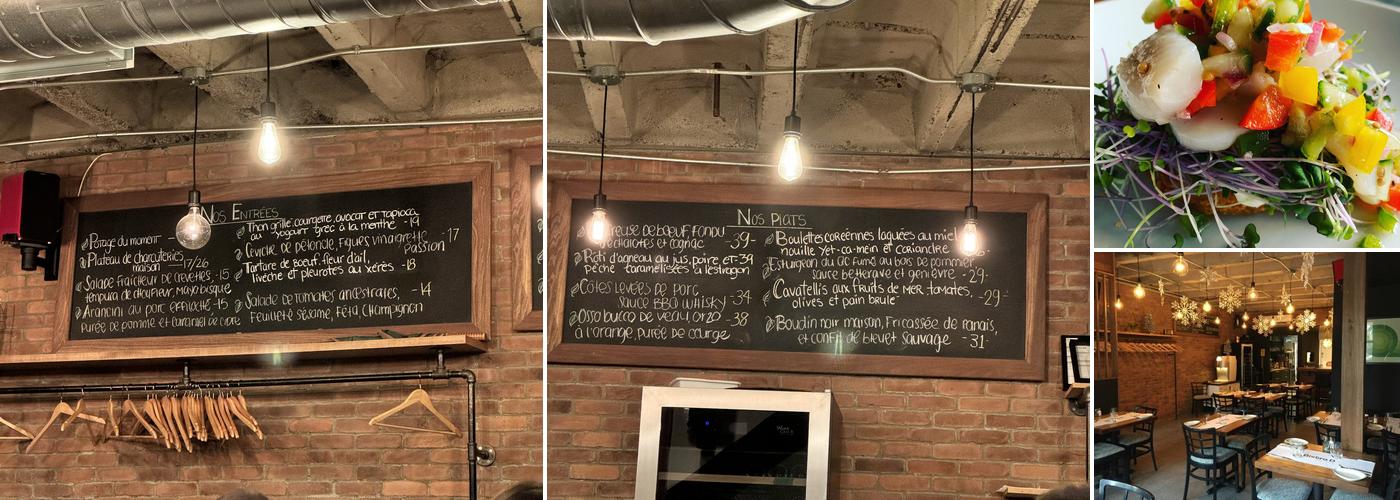 Nos Entrées
Potage du moment -
Plateau de charcuteries
maison - 17/26
Salade fraîcheur de crevettes, -15
tempura de chouFleur, Mayo bisque
Arancini au porc effiloché, -15
purée de pomme et caramel de cidre
Thon grillé: courgette, avocat et tapioca,
au yogourt grec à la menthe -19
Ceviche de pétoncle, Figues vinaigrette -17
Passion
Tartare de bœuf, fleur d'ail,
livèche et pleurotes au xérès -18
Salade de tomates ancestrales, -14
Feuilleté sésame, Féta, Champignon
Nos Plats
de bœuf Fondu
échalotes et cognac -39-
Rôti d'agneau au jus, poire et -34
pêche caramelisées à l'estragon
Côtes levées de porc,
sauce BBQ whisky -34
Osso bucco de veau, orzo -38
à l'orange, purée de courge
Boulettes coréennes laquées au miel
nouille yet-ca-mein et coriandre
Esturgeon du fumé au bois de pommier,
sauce betterave et genièvre -29-
Cavatellis aux fruits de mer, tomates, -29-
olives et pain brulé
Boudin noir maison, Fricassée de panais,
et confit de bleuet sauvage -31-
Bistro D